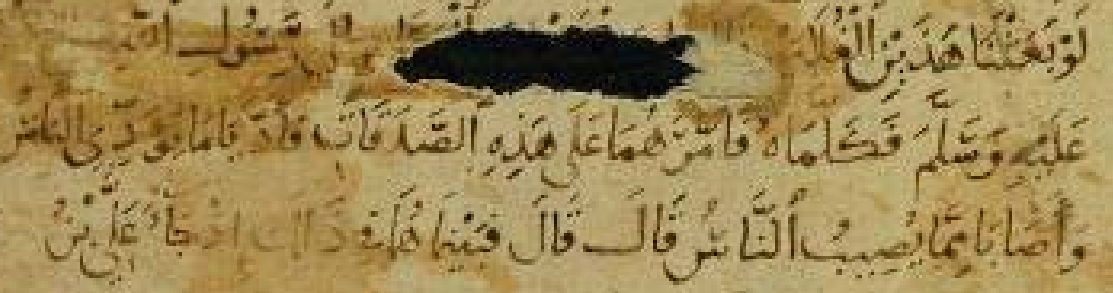 لَوْ بَعَثْنَا هَذَيْنِ الْغُلَا رَسُولِ
عَلَيْهِ وَسَلَّمَ فَكَلَّمَاهُ فَأَمَّرَهُمَا عَلَى هَذِهِ الصَّدَقَاتِ فَأَدَّيَا مَا يُؤَدِّي النَّاسُ
وَأَصَابَا مِمَّا يُصِيبُ النَّاسُ قَالَ قَالَ فَبَيْنَا هُمَا فِي ذَلِكَ إِذْ جَاءَ عَلِيُّ بْنُ